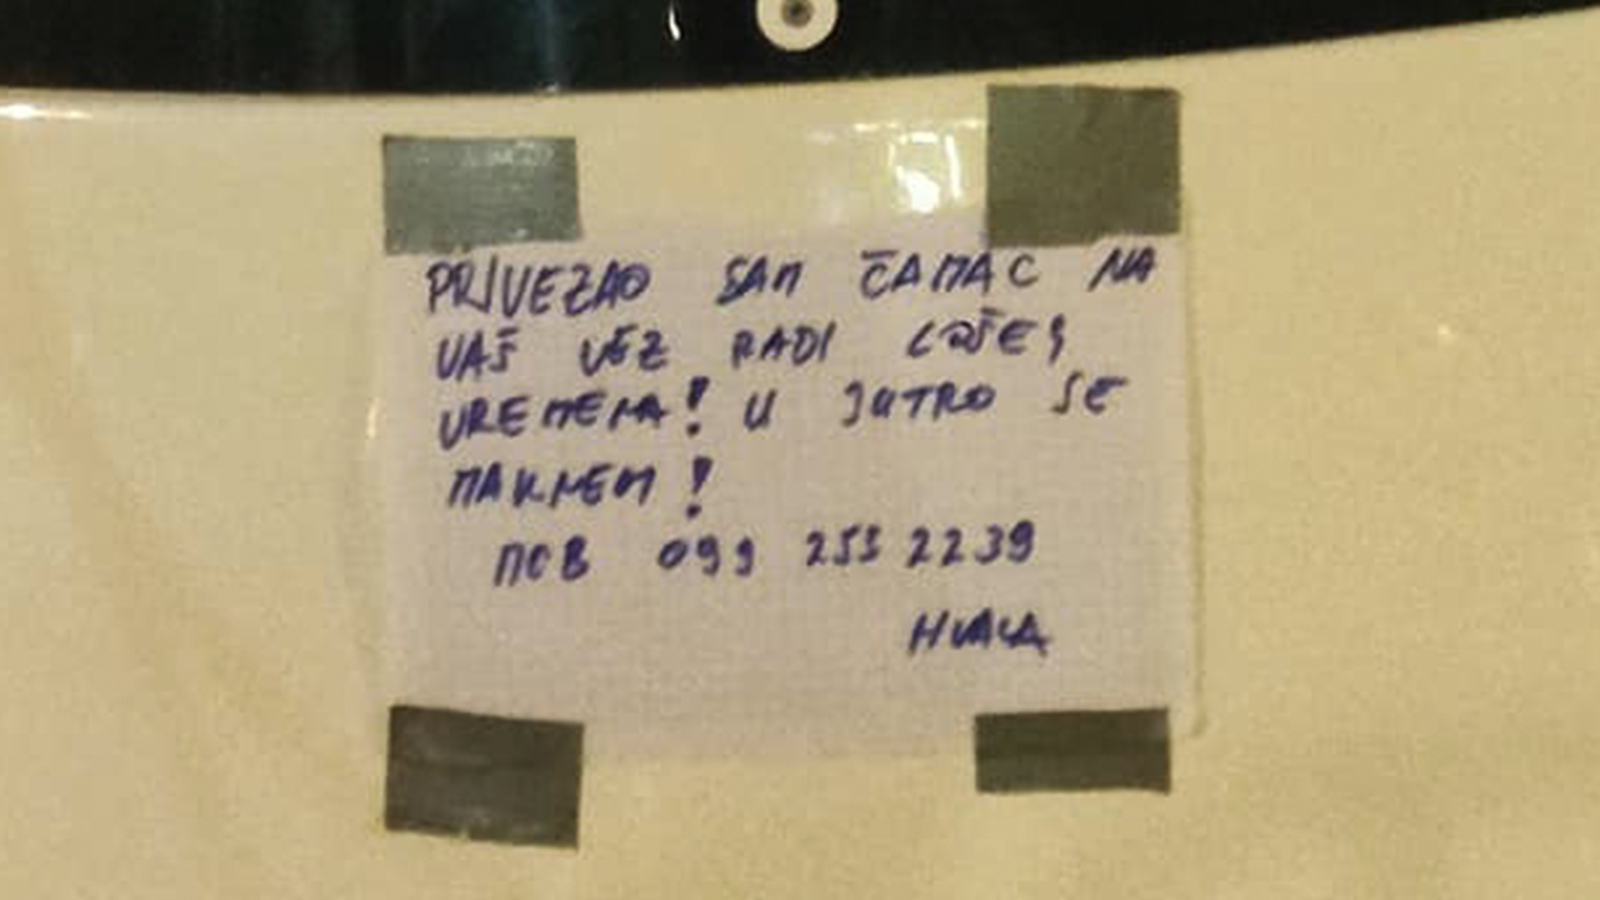 PRIVEZAO SAM ČAMAC NA
VAŠ VEZ RADI LOŠEG
VREMENA! U JUTRO SE
MAKNEM!
MOB 099 253 2239
HVALA